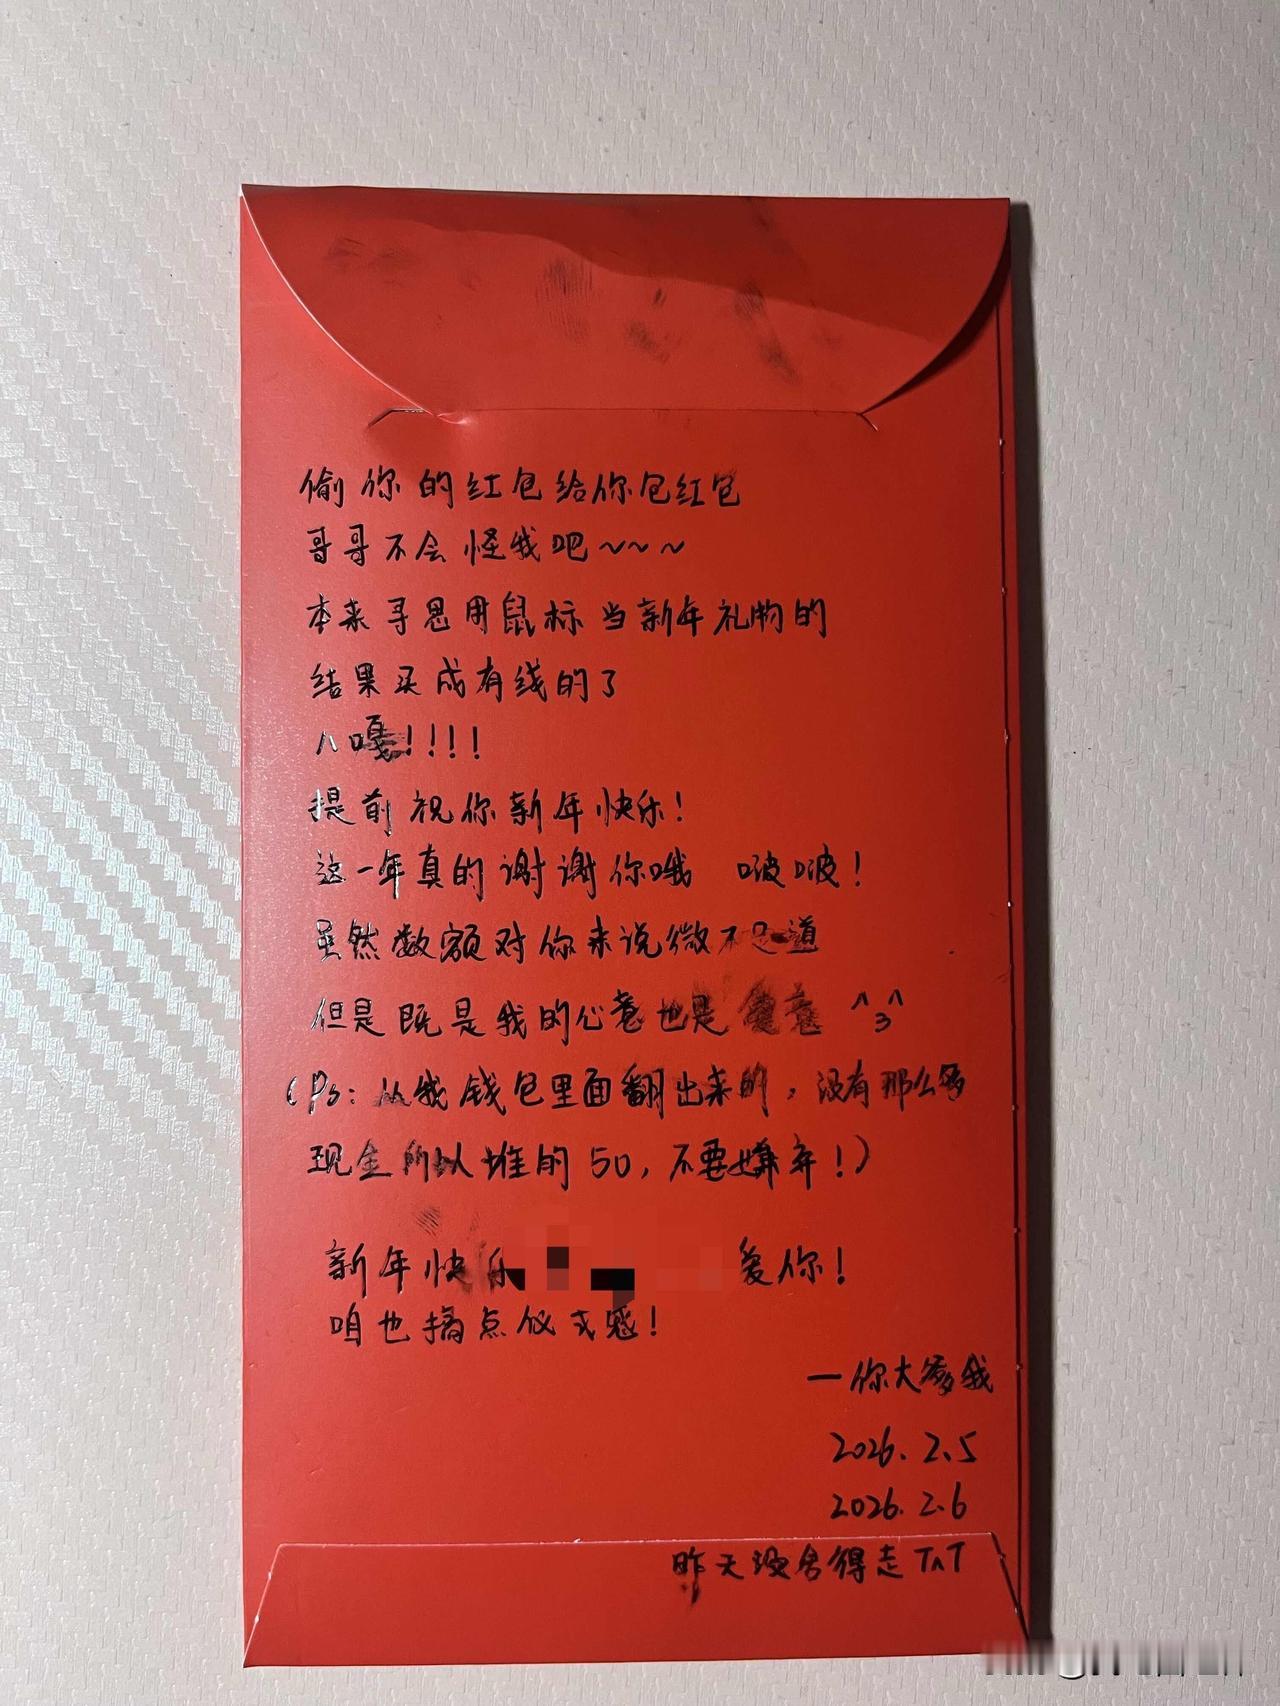 偷你的红包给你包红包
哥哥不会怪我吧~~~
本来寻思用鼠标当新年礼物的
结果买成有线的了
八嘎!!!!
提前祝你新年快乐!
这一年真的谢谢你哦 啵啵!
虽然数额对你来说微不足道
但是既是我的心意也是 ^3^
(Ps:从我钱包里面翻出来的,没有那么多
现金所以堆的50,不要嫌弃!)
新年快乐 爱你!
咱也搞点仪式感!
一你大爹我
2026.2.5
2026.2.6
昨天没舍得走T^T